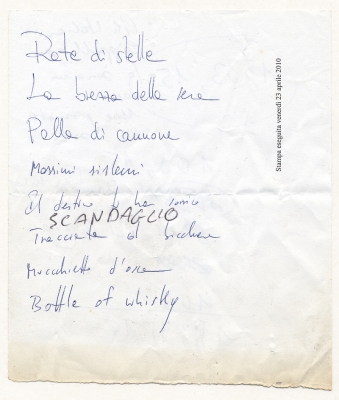 Rate di stelle
La brezza della sera
Palla di cannone
Massimi sistemi
Il destino
SCANDAGLIO
bicchiere
d'ossa
Bottle of whisky
Stampa eseguita venerdì 23 aprile 2010